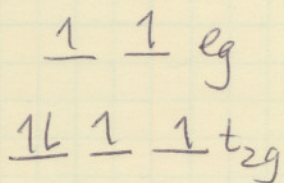 1 1 eg
1l 1 1 t₂g